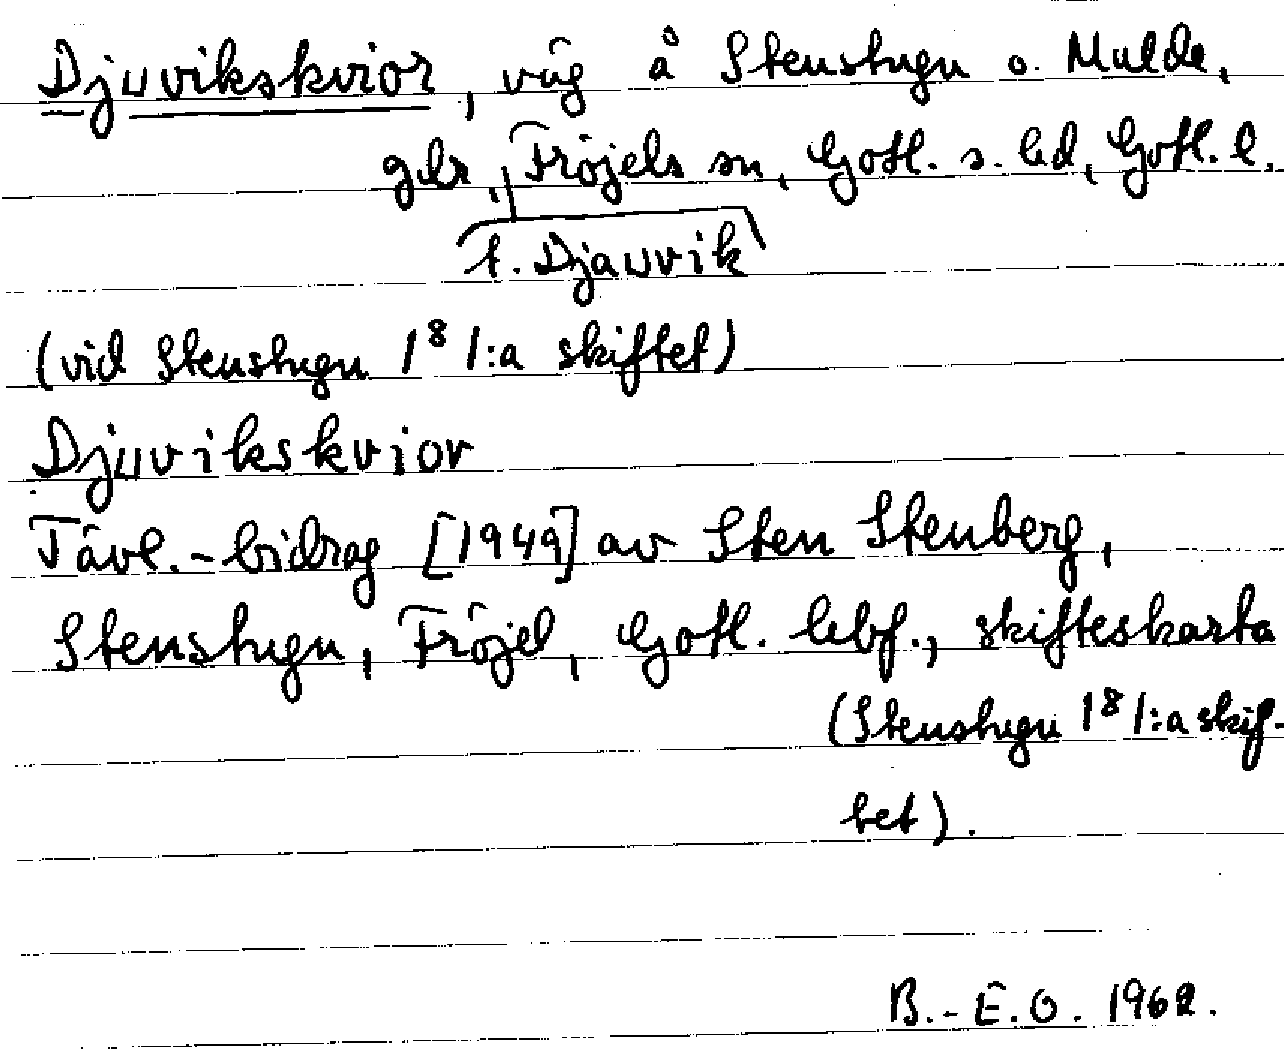 Djuvikskvior, väg å Stenstugu o. Mulde,
gdr, Fröjels sn, Gotl. s. hd, Gotl. l.
t. Djauvik
(vid Stenstugu 1⁸ 1:a skiftet)
Djuvikskvior
Tävl.-bidrag [1949] av Sten Stenberg,
Stenstugu, Fröjel, Gotl. hbf., skifteskarta
(Stenstugu 1⁸ 1:a skif-
tet).
B.-E.O. 1962.